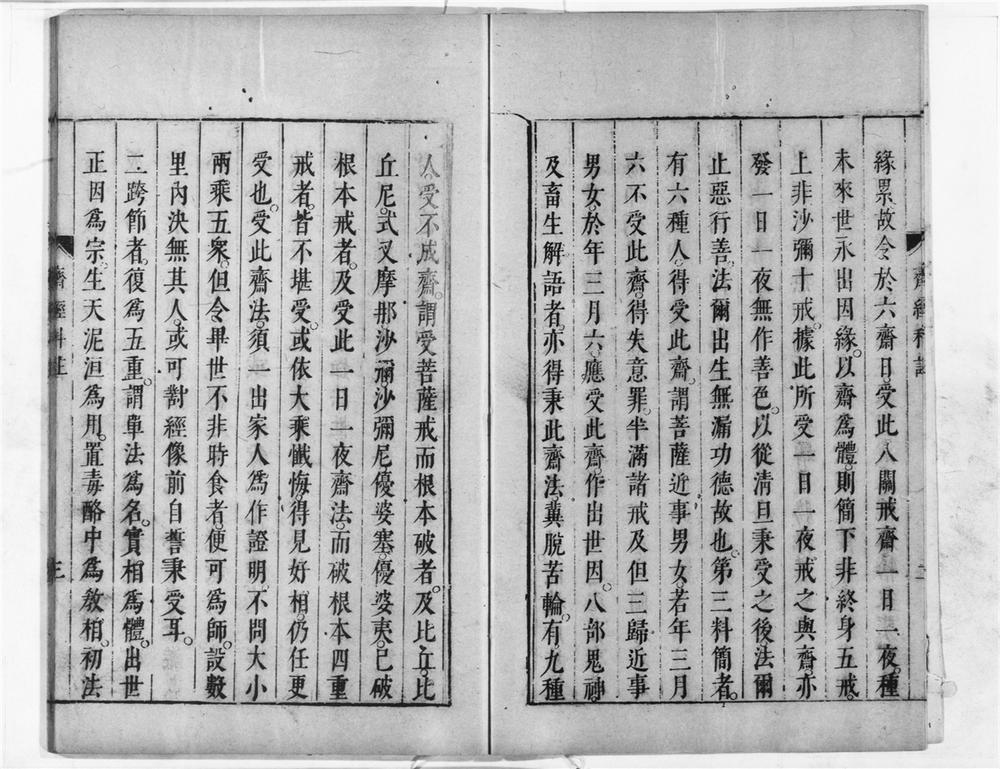 緣累故令於六齋日受此八關戒齋一日一夜。種
未來世永出因緣。以齋爲體。則簡下非終身五戒。
上非沙彌十戒。據此所受一日一夜戒之與齋亦
發一日一夜無作善色。以從清旦秉受之後法爾
止惡行善。法爾出生無漏功德故也。第三料簡者。
有六種人得受此齋。謂菩薩近事男女。若年三月
六不受此齋。得失意罪。半滿諸戒及但三歸近事
男女。於年三月六。應受此齋作出世因。八部鬼神。
及畜生解語者。亦得秉此齋法。冀脫苦輪。有九種
齋經科註
二
人。受不成齋。謂受菩薩戒而根本破者。及比丘。比
丘尼。式叉摩那沙彌沙彌尼優婆塞。優婆夷。已破
根本戒者。及受此一日一夜齋法。而破根本四重
戒者。皆不堪受。或依大乘懺悔。得見好相。仍任更
受也。受此齋法。須一出家人爲作證明。不問大小
兩乘五衆。但令畢世不非時食者。便可爲師。設數
里內決無其人。或可對經像前自誓秉受耳。
二跨節者。復爲五重。謂單法爲名。實相爲體。出世
正因爲宗。生天泥洹爲用。置毒酪中爲教相。初法
齋經科註
三